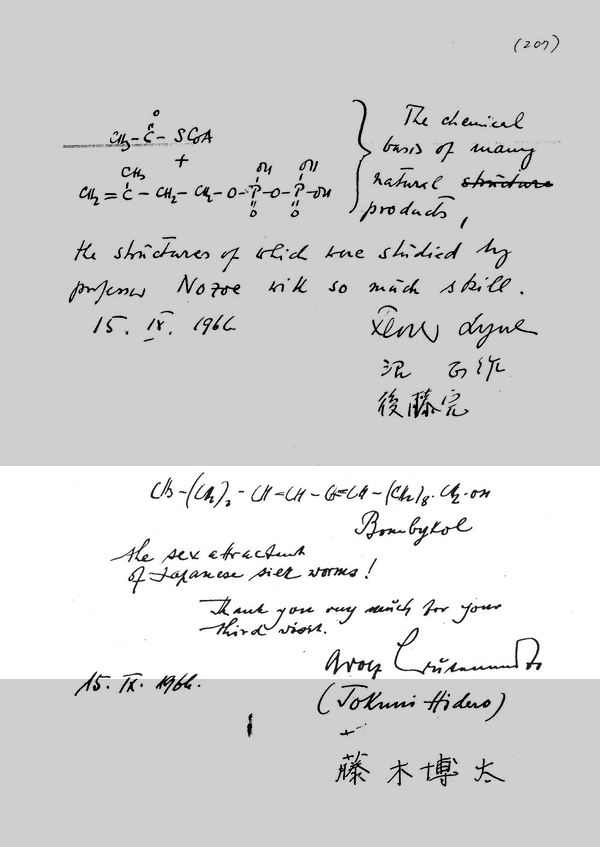 (207)
O
CH3-C-SCoA
+
CH3 OH OH
CH2=C-CH2-CH2-O-P-O-P-OH
O O
The chemical
basis of many
natural structure
products,
the structures of which were studied by
professor Nozoe with so much skill.
15. IX. 1966
Lynen
後藤完
CH3-(CH2)2-CH=CH-CH=CH-(CH2)8-CH2-OH
Bombykol
the sex attractant
of Japanese silk worms!
Thank you very much for your
third visit.
15. IX. 1966.
(Tokumi Hidero)
藤木博太